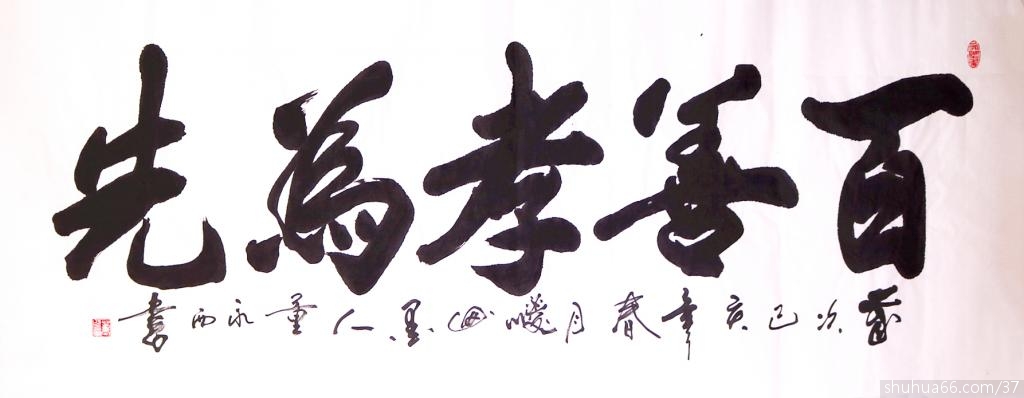 百善孝為先
歲次己亥年春月曖海墨人董永西書
shuhua66.com/37